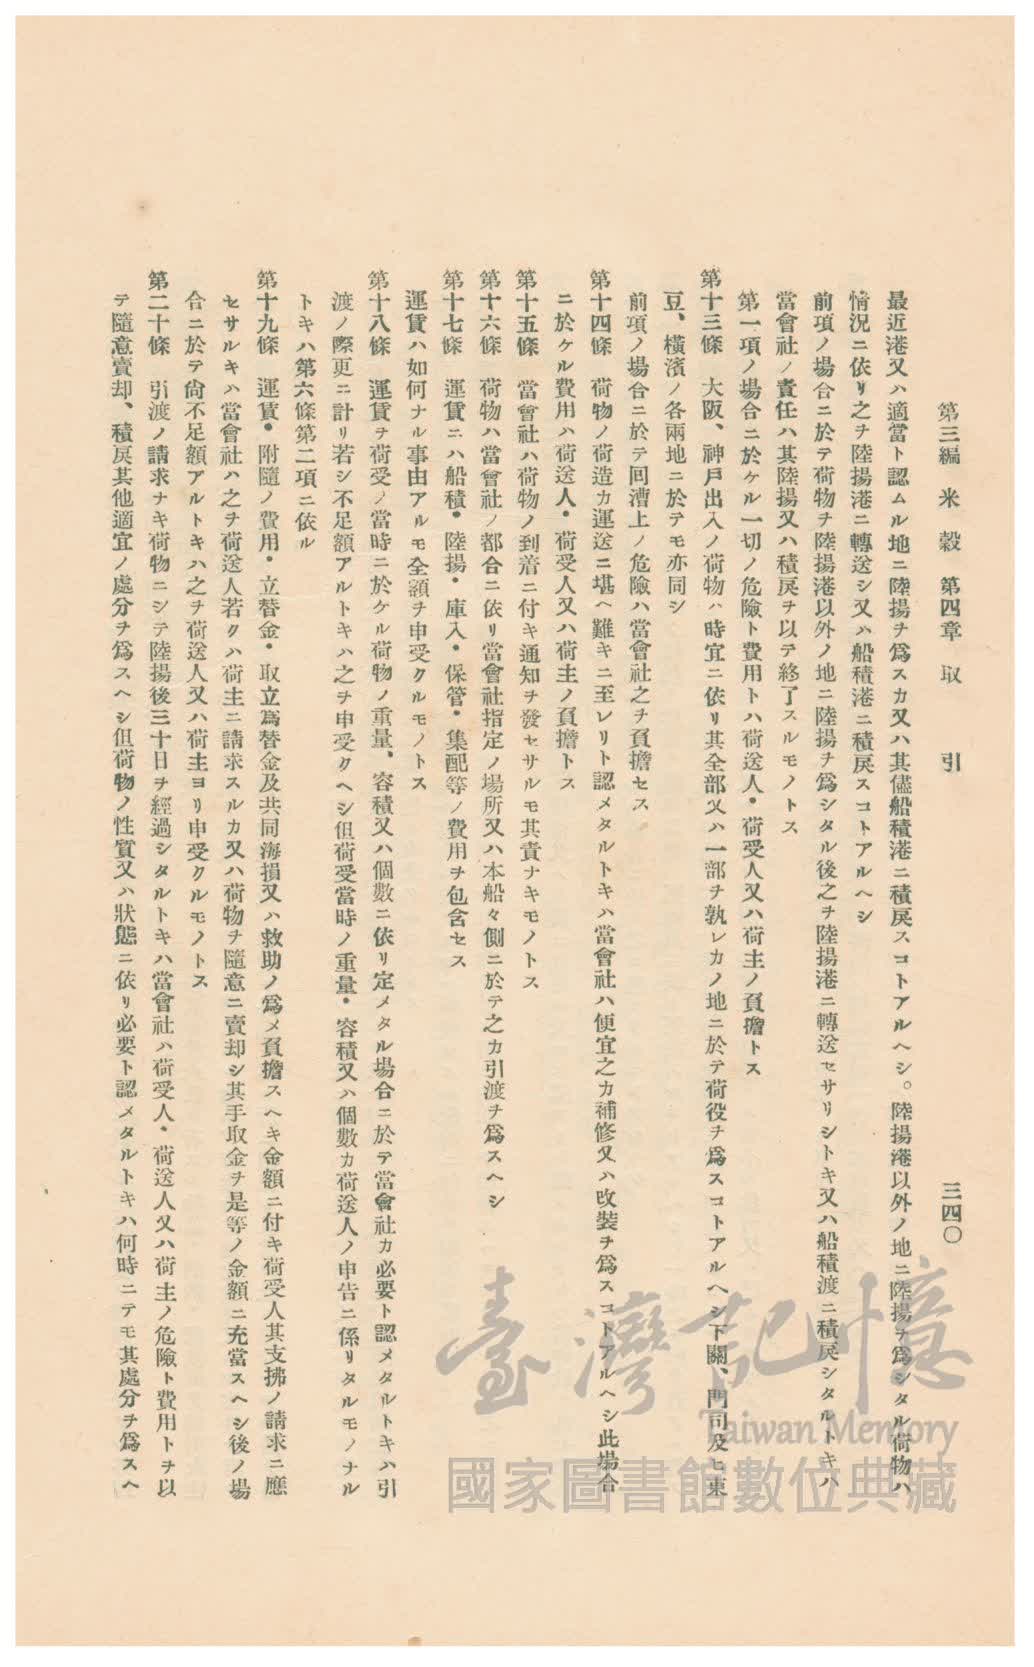 第三編　米　穀　第四章　取　　引　　三四〇
最近港又ハ適當ト認ムル地ニ陸揚チ爲スカ又ハ其儘船積港ニ積戾スコトアルヘシ。陸揚港以外ノ地ニ陸揚チ爲シタル荷物ハ
情況ニ依リ之チ陸揚港ニ轉送シ又ハ船積港ニ積戾スコトアルヘシ
前項ノ場合ニ於テ荷物チ陸揚港以外ノ地ニ陸揚チ爲シタル後之チ陸揚港ニ轉送セサリシトキ又ハ船積渡ニ積戾シタルトキハ
當會社ノ責任ハ其陸揚又ハ積戾チ以テ終了スルモノトス
第一項ノ場合ニ於ケル一切ノ危險ト費用トハ荷送人・荷受人又ハ荷主ノ負擔トス
第十三條　大阪、神戶出入ノ荷物ハ時宜ニ依リ其全部又ハ一部チ孰レカノ地ニ於テ荷役チ爲スコトアルヘシ下關、門司及ヒ東
京、橫濱ノ各兩地ニ於テモ亦同シ
前項ノ場合ニ於テ回漕上ノ危險ハ當會社之チ負擔セス
第十四條　荷物ノ荷造カ運送ニ堪ヘ難キニ至レリト認メタルトキハ當會社ハ便宜之カ補修又ハ改裝チ爲スコトアルヘシ此場合
ニ於ケル費用ハ荷送人・荷受人又ハ荷主ノ負擔トス
第十五條　當會社ハ荷物ノ到着ニ付キ通知チ發セサルモ其責ナキモノトス
第十六條　荷物ハ當會社ノ都合ニ依リ當會社指定ノ場所又ハ本船々側ニ於テ之カ引渡チ爲スヘシ
第十七條　運賃ニハ船積・陸揚・庫入・保管・集配等ノ費用ヲ包含セス
運賃ハ如何ナル事由アルモ全額チ申受クルモノトス
第十八條　運賃チ荷受ノ當時ニ於ケル荷物ノ重量、容積又ハ個數ニ依リ定メタル場合ニ於テ當會社カ必要ト認メタルトキハ引
渡ノ際更ニ計リ若シ不足額アルトキハ之チ申受クヘシ但荷受當時ノ重量・容積又ハ個數カ荷送人ノ申告ニ係リタルモノナル
トキハ第六條第二項ニ依ル
第十九條　運賃・附隨ノ費用・立替金・取立爲替金及共同海損又ハ救助ノ爲メ負擔スヘキ金額ニ付キ荷受人其支拂ノ請求ニ應
セサルキハ當會社ハ之チ荷送人若クハ荷主ニ請求スルカ又ハ荷物チ隨意ニ賣却シ其手取金チ是等ノ金額ニ充當スヘシ後ノ場
合ニ於テ尙不足額アルトキハ之チ荷送人又ハ荷主ヨリ申受クルモノトス
第二十條　引渡ノ請求ナキ荷物ニシテ陸揚後三十日チ經過シタルトキハ當會社ハ荷受人・荷送人又ハ荷主ノ危險ト費用トチ以
テ隨意賣却、積戾其他適宜ノ處分チ爲スヘシ但荷物ノ性質又ハ狀態ニ依リ必要ト認メタルトキハ何時ニテモ其處分チ爲スヘ
臺灣記憶
Taiwan Memory
國家圖書館數位典藏